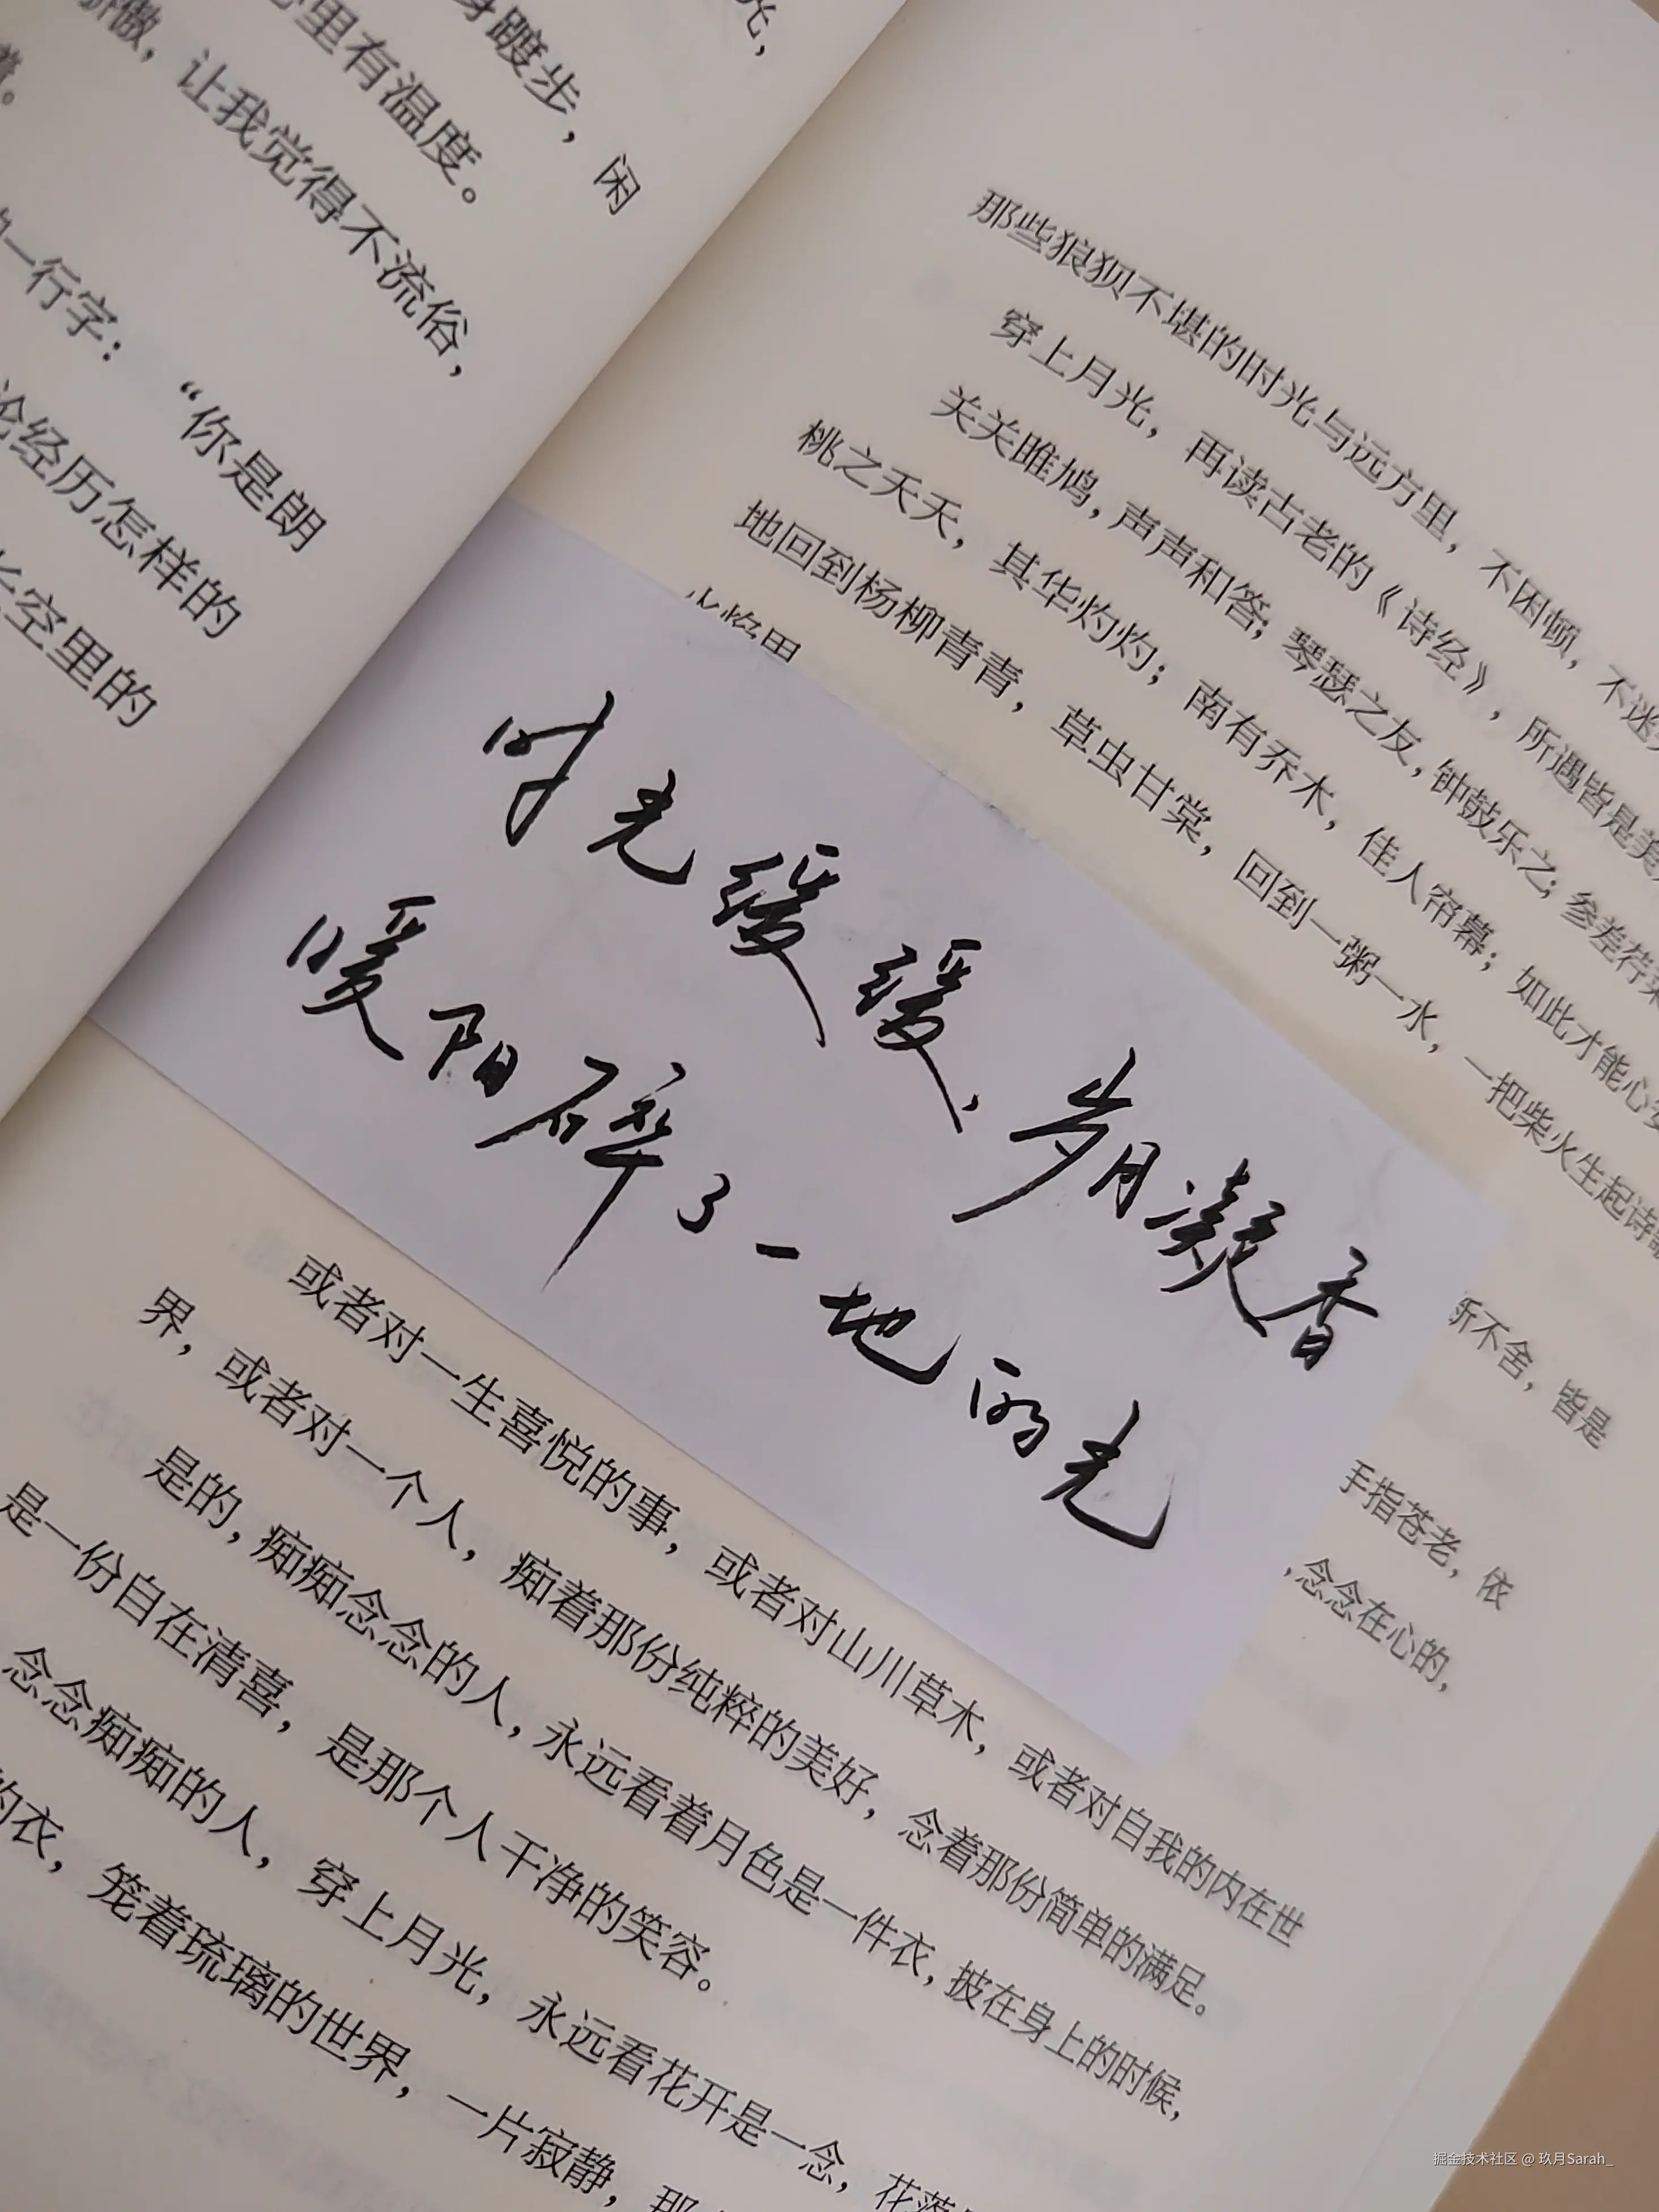 光，
身踱步，闲
里有温度。
傲，让我觉得不流俗，
一行字：“你是朗
论经历怎样的
空里的
那些狼狈不堪的时光与远方里，不困顿，不迷
穿上月光，再读古老的《诗经》，所遇皆是美
关关雎鸠，声声和答；琴瑟之友，钟鼓乐之；参差荇菜
桃之夭夭，其华灼灼；南有乔木，佳人帘幕；如此才能心安
地回到杨柳青青，草虫甘棠，回到一粥一水，一把柴火生起诗歌
火焰里
时光缓缓、岁月凝香
暖阳碎了一地的光
断不舍，皆是
手指苍老，依
，念念在心的，
或者对一生喜悦的事，或者对山川草木，或者对自我的内在世
界，或者对一个人，痴着那份纯粹的美好，念着那份简单的满足。
是的，痴痴念念的人，永远看着月色是一件衣，披在身上的时候，
是一份自在清喜，是那个人干净的笑容。
念念痴痴的人，穿上月光，永远看花开是一念，花落
的衣，笼着琉璃的世界，一片寂静，那
掘金技术社区 @ 玖月Sarah_